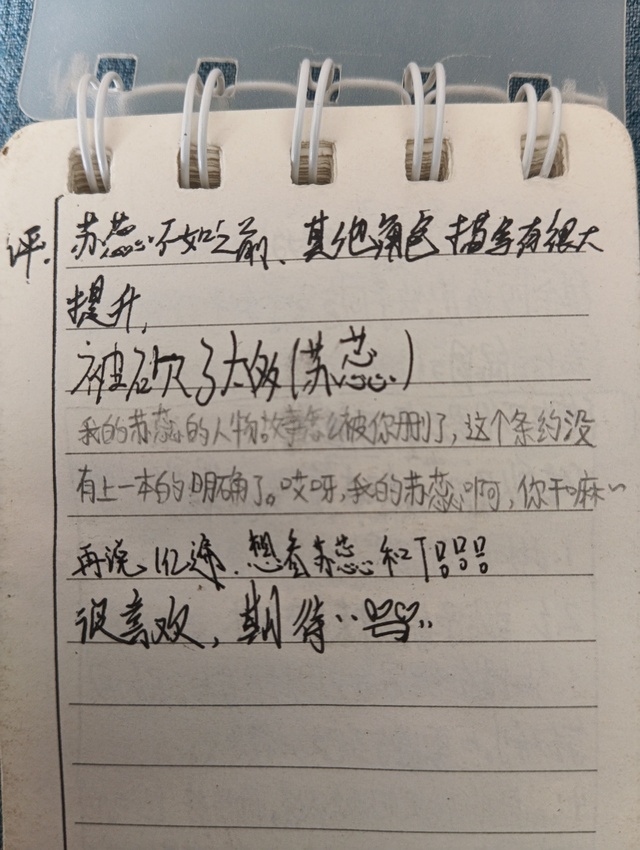 评. 苏蕊不如之前、其他角色描写有很大
提升,
被砍了大饭(苏蕊)
我的苏蕊的人物故事怎么被你删了,这个条约没
有上一本的明确了。哎呀,我的苏蕊啊,你干嘛~
再说1亿遍.想看苏蕊和
很喜欢,期待